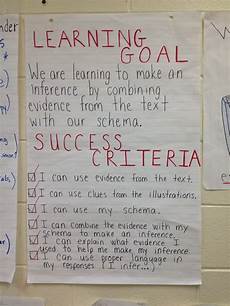 LEARNING
GOAL
We are learning to make an
inference by combining
evidence from the text
with our schema.
SUCCESS
CRITERIA
I can use evidence from the text.
I can use clues from the illustrations.
I can use my schema.
I can combine the evidence with my
schema to make an inference.
I can explain what evidence I
used to help me make my inference
I can use proper language in
my responses (I infer...)